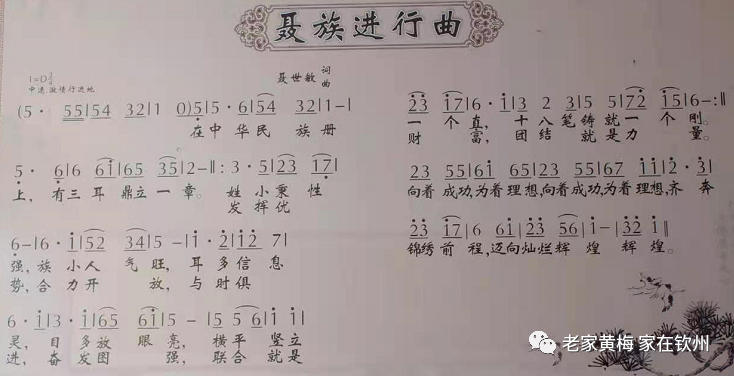 聂族进行曲
1=D 2/4
中速 激情行进地
聂世敏 词曲
(5· 55|54 32|1 0)5|5·6|54 32|1-|
在中华民 族册
5· 6|6 61|65 35|2-‖:3·5|23 17|
上，有三耳鼎立一章。姓小秉性
发挥优
6-|6·1|52 34|5-|1·2|12 7|
强，族小人气旺，耳多信息
势，合力开放，与时俱
6·1|3·1|65 61|5-|5 56|1 1|
灵，目多放眼亮，横平竖立
进，奋发图强，联合就是
23 17|6·1|3 2 3|5 5|72 15|6-:‖
一个直，十八笔铸就一个刚。
财富，团结就是力量。
23 55|61 23|55 61|23 55|67 11|2·3|
向着成功，为着理想，向着成功，为着理想，齐奔
23 17|6 61|23 56|1-|32 1‖
锦绣前程，迈向灿烂辉煌辉煌。
老家黄梅 家在钦州